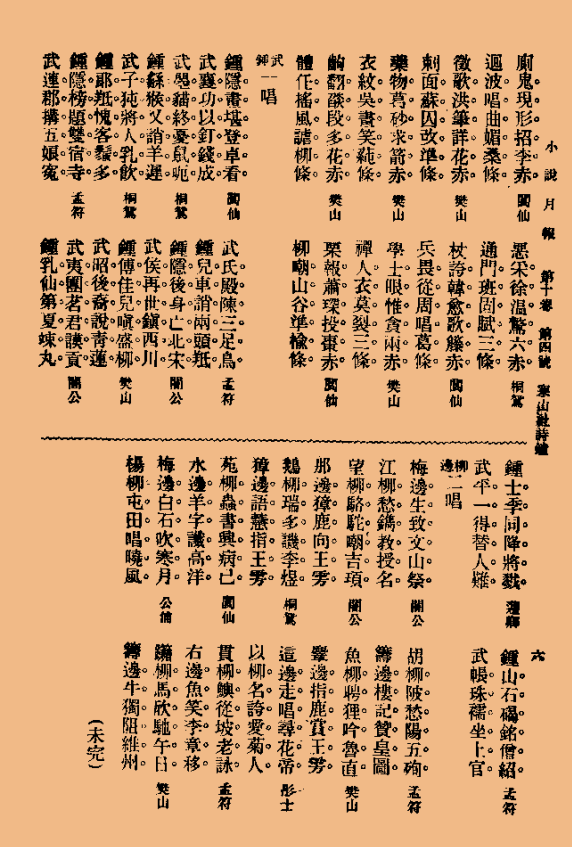 小說月報 第十卷 第四號 寒山社詩鐘
六
廁鬼現形招李赤
過波唱曲媚桑條 闇仙
徵歌洪筆詳花赤
刺面蘇囚改準條 樊山
藥物葛砂求箭赤
衣紋吳畫笑蒓條 樊山
翻翻蹳段多花赤
體任搖風謔柳條 樊山
武鍾一唱
鍾隱畫堪登卓看
武襄功以釘錢成 闇仙
武曌貓終憂鼠呃
鍾繇猴又誚羊遲 桐鴛
武子㹠將人乳飲
鍾郎羝愧客鬚多 桐鴛
鍾隱榜題雙宿寺
武連郡搆五娘寃 孟符
悪宋徐溫驚六赤
通門班固賦三條 桐鴛
杖誇韓愈歌籐赤
兵畏從周唱葛條 闇仙
學士眼惟貪兩赤
禪人衣莫裂三條 樊山
栗報蕭琛投棗赤
柳嘲山谷準楡條 闇仙
武氏殿陳三足烏
鍾兒車誚兩頭羝 孟符
鍾隱後身亡北宋
武侯再世鎭西川 闇公
鍾傅佳兒嗔盛柳
武昭後裔說靑蓮 樊山
武夷團茗君謨貢
鍾乳仙第夏竦丸 闇公
鍾士季同降將戮
武平一得替人難
柳邊二唱
梅邊生致文山祭
江柳愁鐫敎授名 闇公
望柳駱駝嘲吉頊
那邊獐鹿向王雱 闇公
鵝柳瑞多譏李煜
獐邊語慧指王雱 桐鴛
苑柳蟲書興病已
水邊羊字讖高洋 闇仙
梅邊白石吹寒月
楊柳屯田唱曉風 公俌
鍾山石碣銘僧紹
武帳珠襦坐上官 孟符
胡柳陂愁陽五殉
籌邊樓記贊皇圖 孟符
魚柳聘狸吟魯直
麞邊指鹿賞王雱 樊山
這邊走唱尋花帝
以柳名誇愛菊人 彤士
貫柳鰱從坡老詠
右邊魚笑李章移 孟符
躤柳馬欣馳午日
籌邊牛獨阻維州 樊山
(未完)